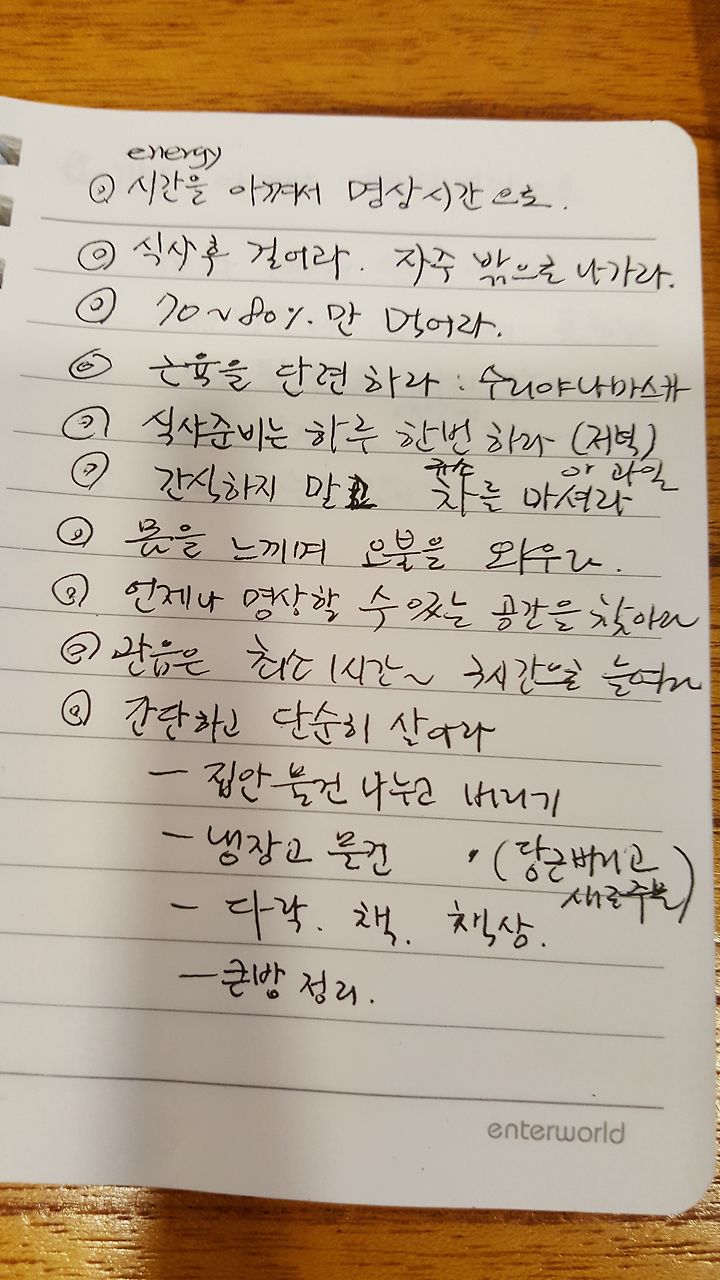 energy
시간을 아껴서 명상시간으로.
식사후 걸어라. 자주 밖으로 나가라.
70~80%만 먹어라.
근육을 단련하라 : 수리야나마스카
식사준비는 하루 한번 하라 (저녁)
채소 야 과일
간식하지 말고 차를 마셔라
몸을 느끼며 호흡을 와우라.
언제나 명상할 수 있는 공간을 찾아라
관음은 최소 1시간~ 3시간으로 늘여라
간단하고 단순히 살아라
- 집안 물건 나누고 버리기
- 냉장고 물건 · (당근버리고
새로주문)
- 다락. 책. 책상.
- 큰방 정리.
enterworld